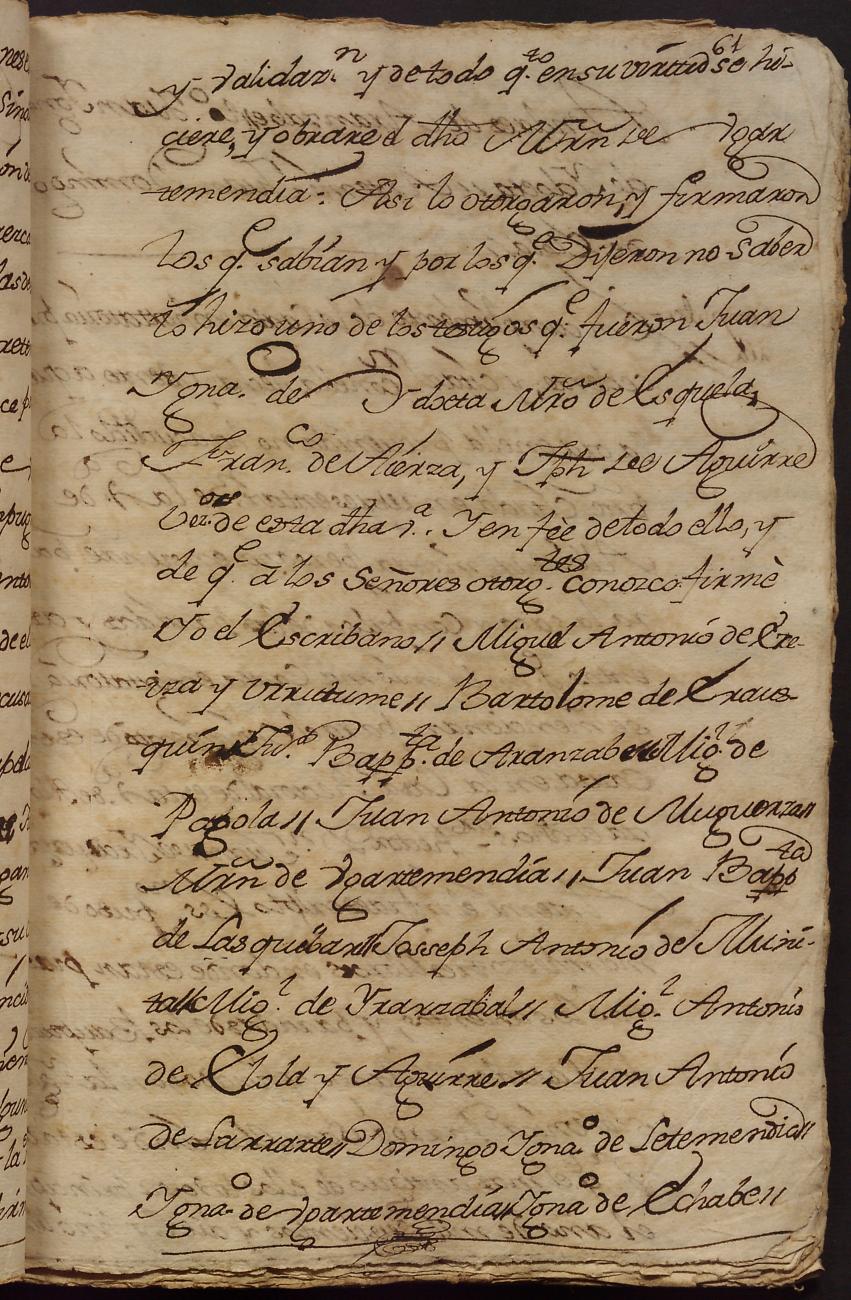 61
y validazn. y de todo q.to en su virtud se hi-
ciere, y obrare el dho Mrñ de Ygar
temendia: Asi lo otorgaron, y firmaron
los q.e sabian y por los q.e Dijeron no saber
lo hizo uno de los testigos q.e fueron Juan
Ygna.o de Ydocta Mrõ de Esquela,
Fran.co de Aierza, y Jph de Aguirre
Vez.os de esta dha v.a. Y en fee de todo ello, y
de q.e à los Señores otorg.tes conozco firmè
Yo el Escribano,, Miguel Antonio de Ere-
iza y Urrutume,, Bartolome de Eraus-
quin Bapp.ta de Aranzabe,, Mig.l de
Pagola,, Juan Antonio de Muguerza,,
Mrñ de Ygartemendia,, Juan Bapp.ta
de Lasquibar,, Josseph Antonio de Muñi-
ta,, Mig.l de Yrarzabal,, Mig.l Antonio
de Elola y Aguirre,, Juan Antonio
de Larrarte,, Domingo Igna.o de Letemendia,,
Igna.o de Ygartemendia,, Igna.o de Echabe,,